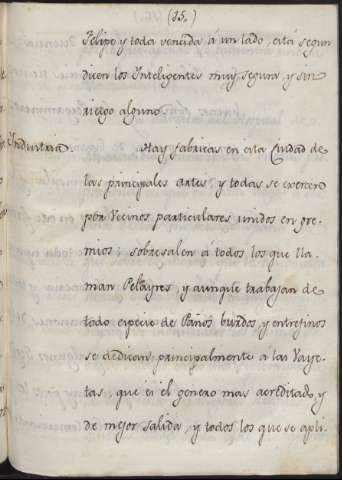 (15.)
Felipe y toda vencida á un lado, está segun
dicen los Inteligentes muy segura, y sin
riesgo alguno.
Industria. Hay fabricas en esta Ciudad de
las principales artes, y todas se exercen
por Vecinos particulares unidos en gre-
mios; sobresalen á todos los que lla-
man Pelayres, y aunque trabajan de
todo especie de Paños burdos, y entrefinos
se dedican principalmente a las Vaye-
tas, que es el genero mas acreditado, y
de mejor salida, y todos los que se apli-